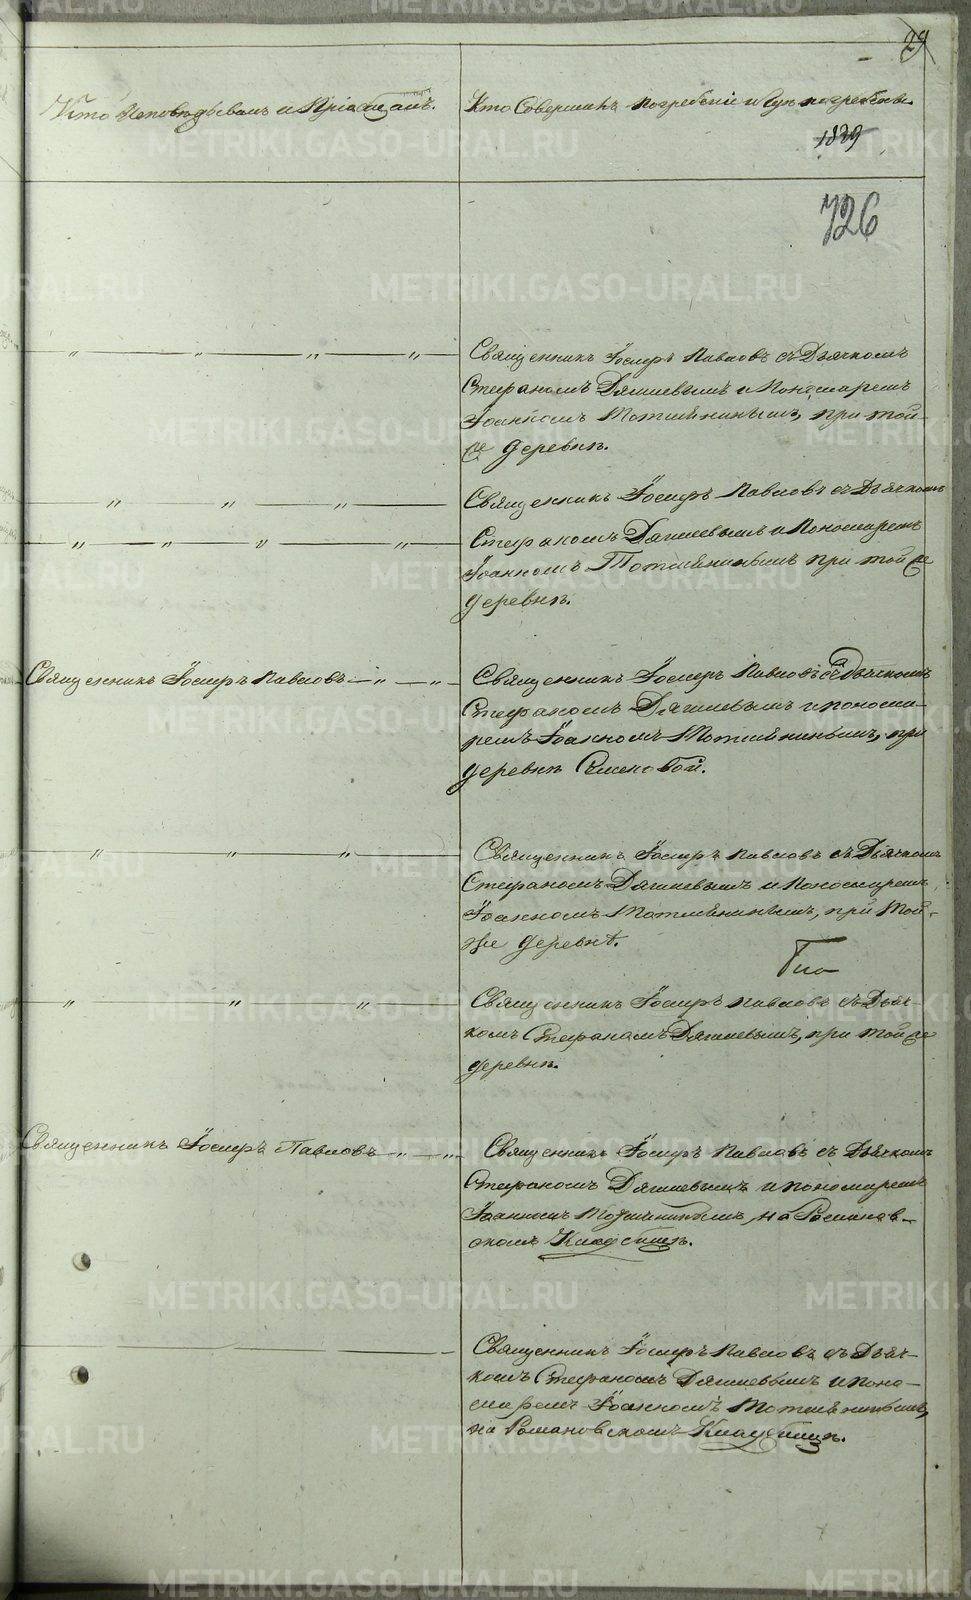 29
Кто Исповѣдывалъ и Пріобщалъ.
Кто Совершилъ погребеніе и гдѣ погребены
1839
726
Священникъ Іосифъ Павловъ съ Дьячкомъ
Стефаномъ Дягилевымъ и Пономаремъ
Іоанномъ Топильнинымъ, при той
же деревнѣ.
Священникъ Іосифъ Павловъ съ Дьячкомъ
Стефаномъ Дягилевымъ и Пономаремъ
Іоанномъ при той же
деревнѣ.
Священникъ Іосифъ Павловъ
Священникъ Іосифъ Павловъ съ Дьячкомъ
Стефаномъ Дягилевымъ и понома-
ремъ Іоанномъ при
деревнѣ
Священникъ Іосифъ Павловъ съ Дьячкомъ
Стефаномъ Дягилевымъ и Пономаремъ
Іоанномъ при той-
же деревнѣ.
Священникъ Іосифъ Павловъ съ Дьяч-
комъ Стефаномъ Дягилевымъ, при той же
деревнѣ.
Священникъ Іосифъ Павловъ
Священникъ Іосифъ Павловъ съ Дьячкомъ
Стефаномъ Дягилевымъ и пономаремъ
Іоанномъ на Романов-
скомъ Кладбищѣ.
Священникъ Іосифъ Павловъ съ Дьяч-
комъ Стефаномъ Дягилевымъ и поно-
маремъ Іоанномъ
на Романовскомъ Кладбищѣ.
METRIKI.GASO-URAL.RU